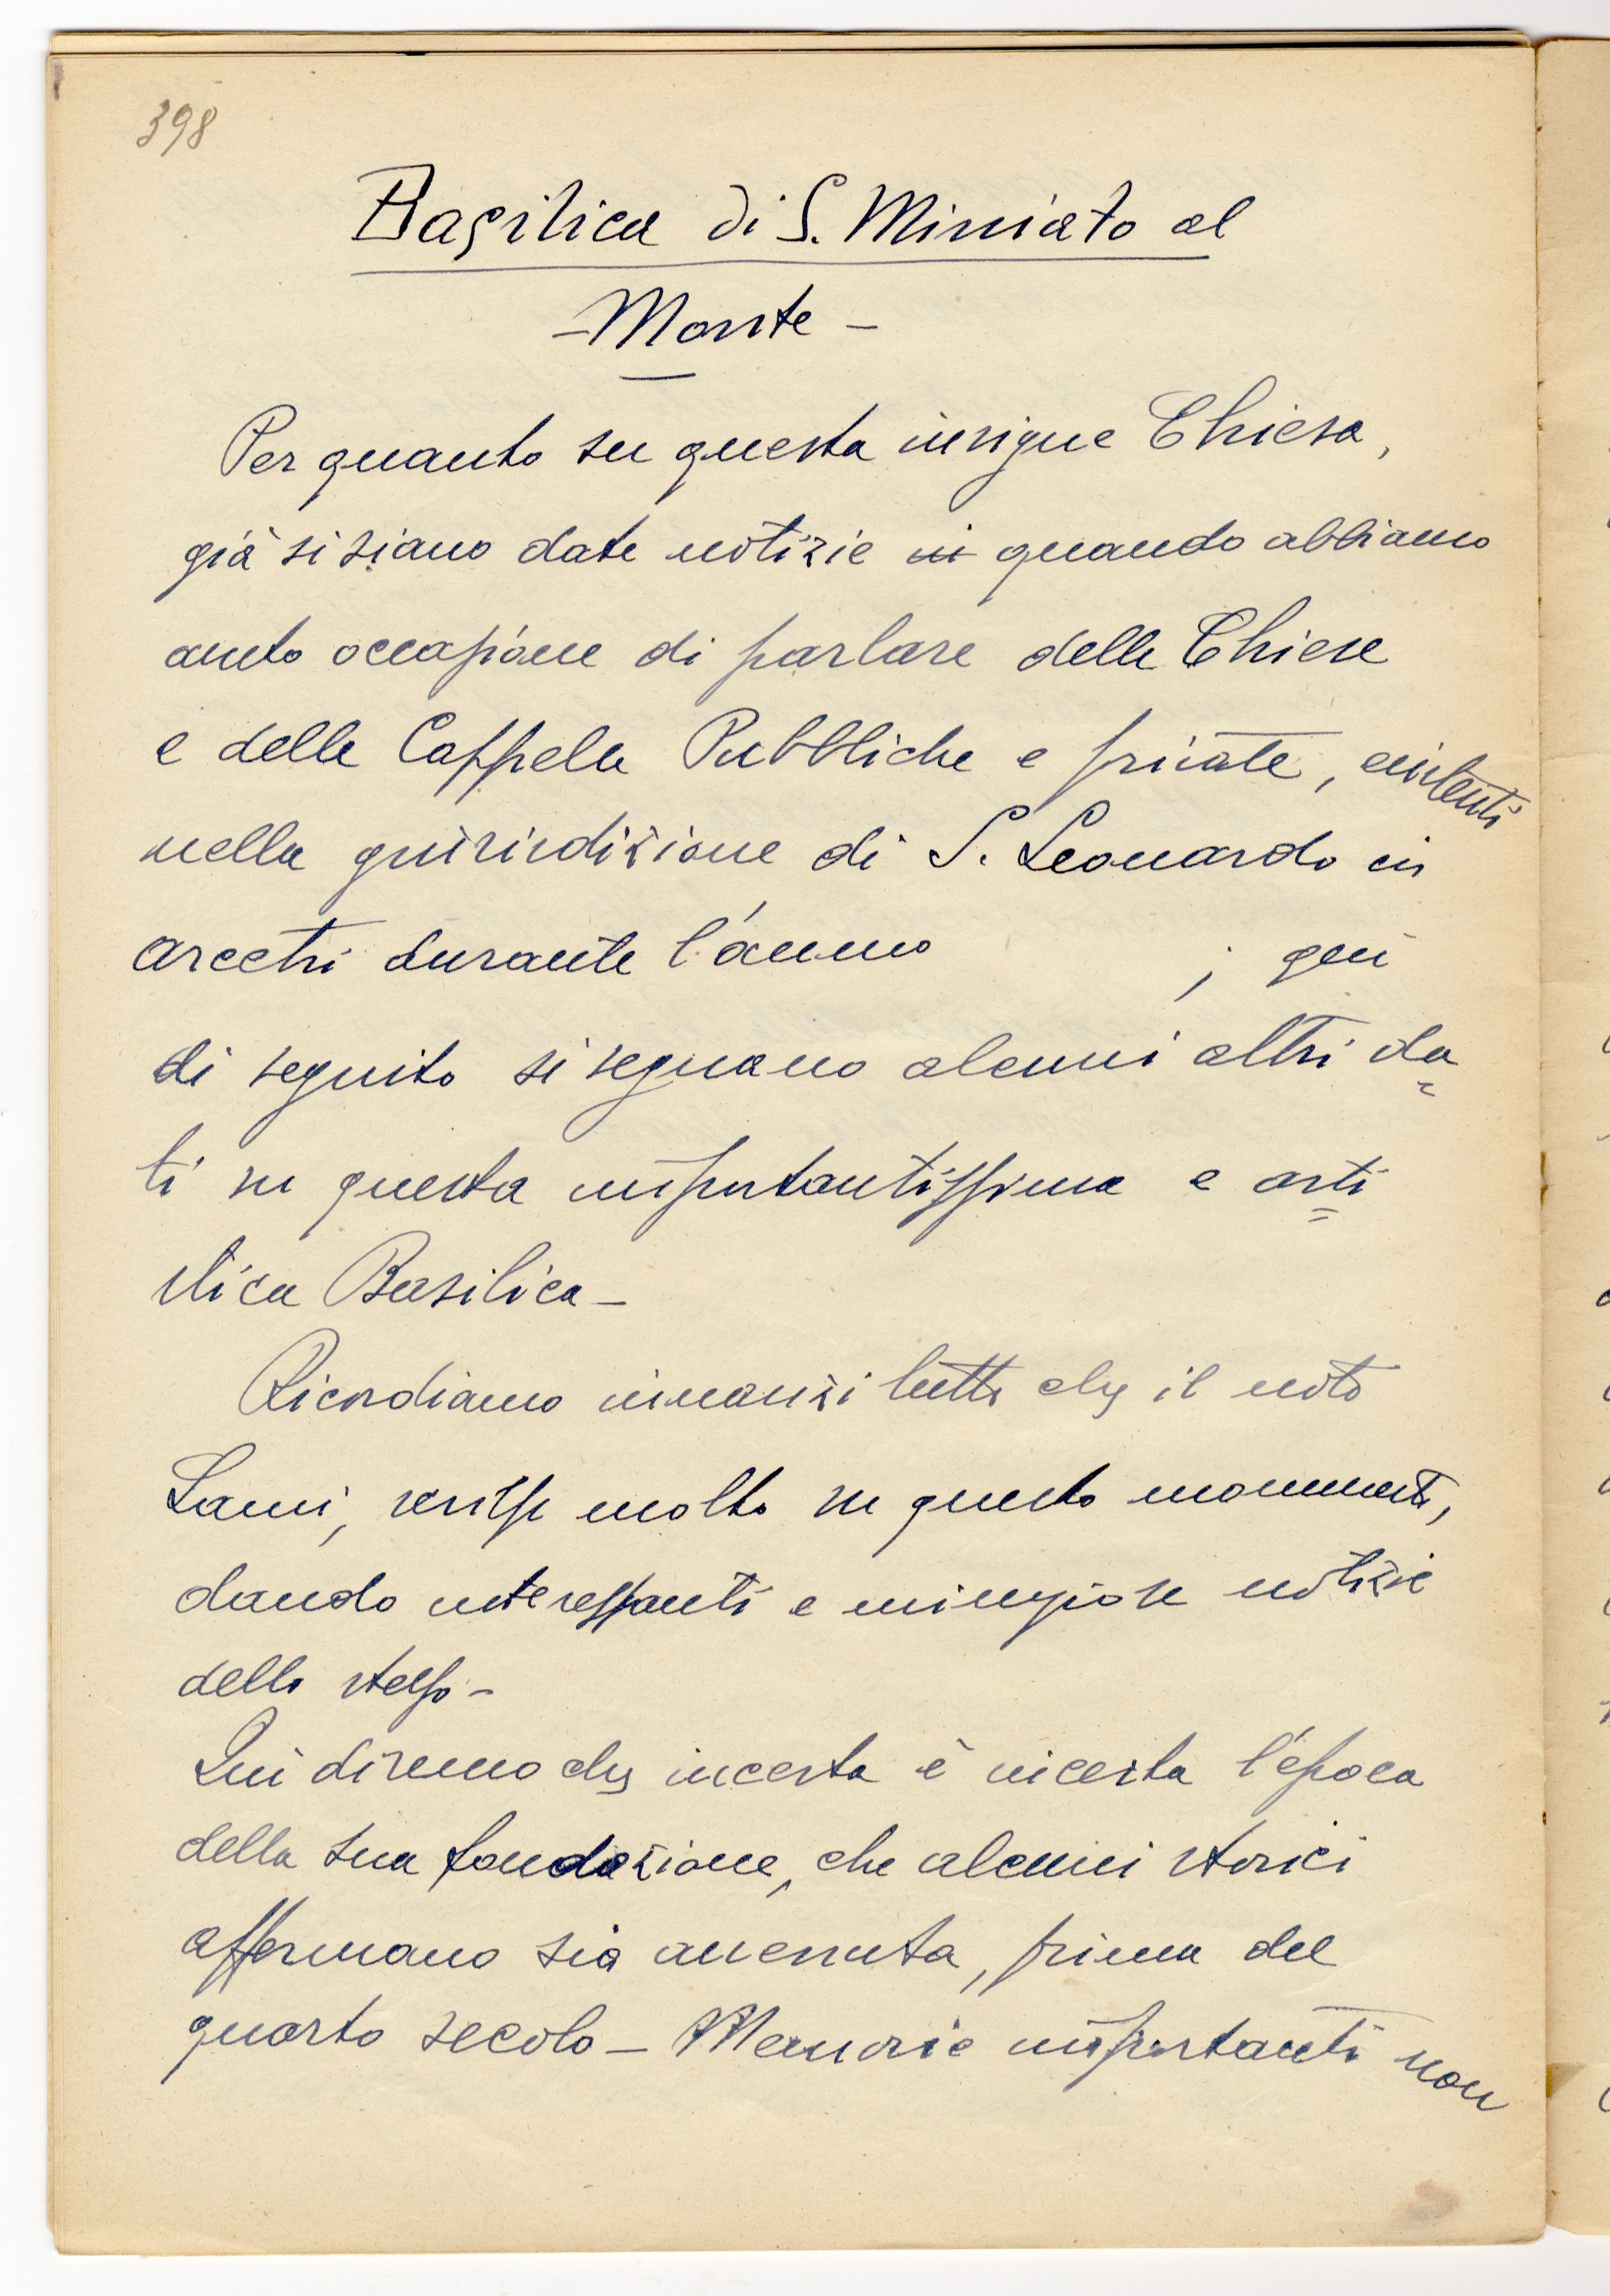 398
Basilica di S. Miniato al
- Monte -
Per quanto su questa insigne Chiesa,
già si siano date notizie in quando abbiamo
auto occasione di parlare delle Chiese
e delle Cappelle Pubbliche e private, esistenti
nella giurisdizione di S. Leonardo in
Arcetri durante l'anno ; quì
di seguito si segnano alcuni altri da=
ti su questa importantissima e arti=
stica Basilica -
Ricordiamo innanzi tutto che il noto
Lami, scrisse molto su questo monumento,
dando interessanti e minuziose notizie
dello stesso -
Quì diremo che incerta è incerta l'epoca
della sua fondazione, che alcuni storici
affermano sia avvenuta, prima del
quarto secolo - Memorie importanti non